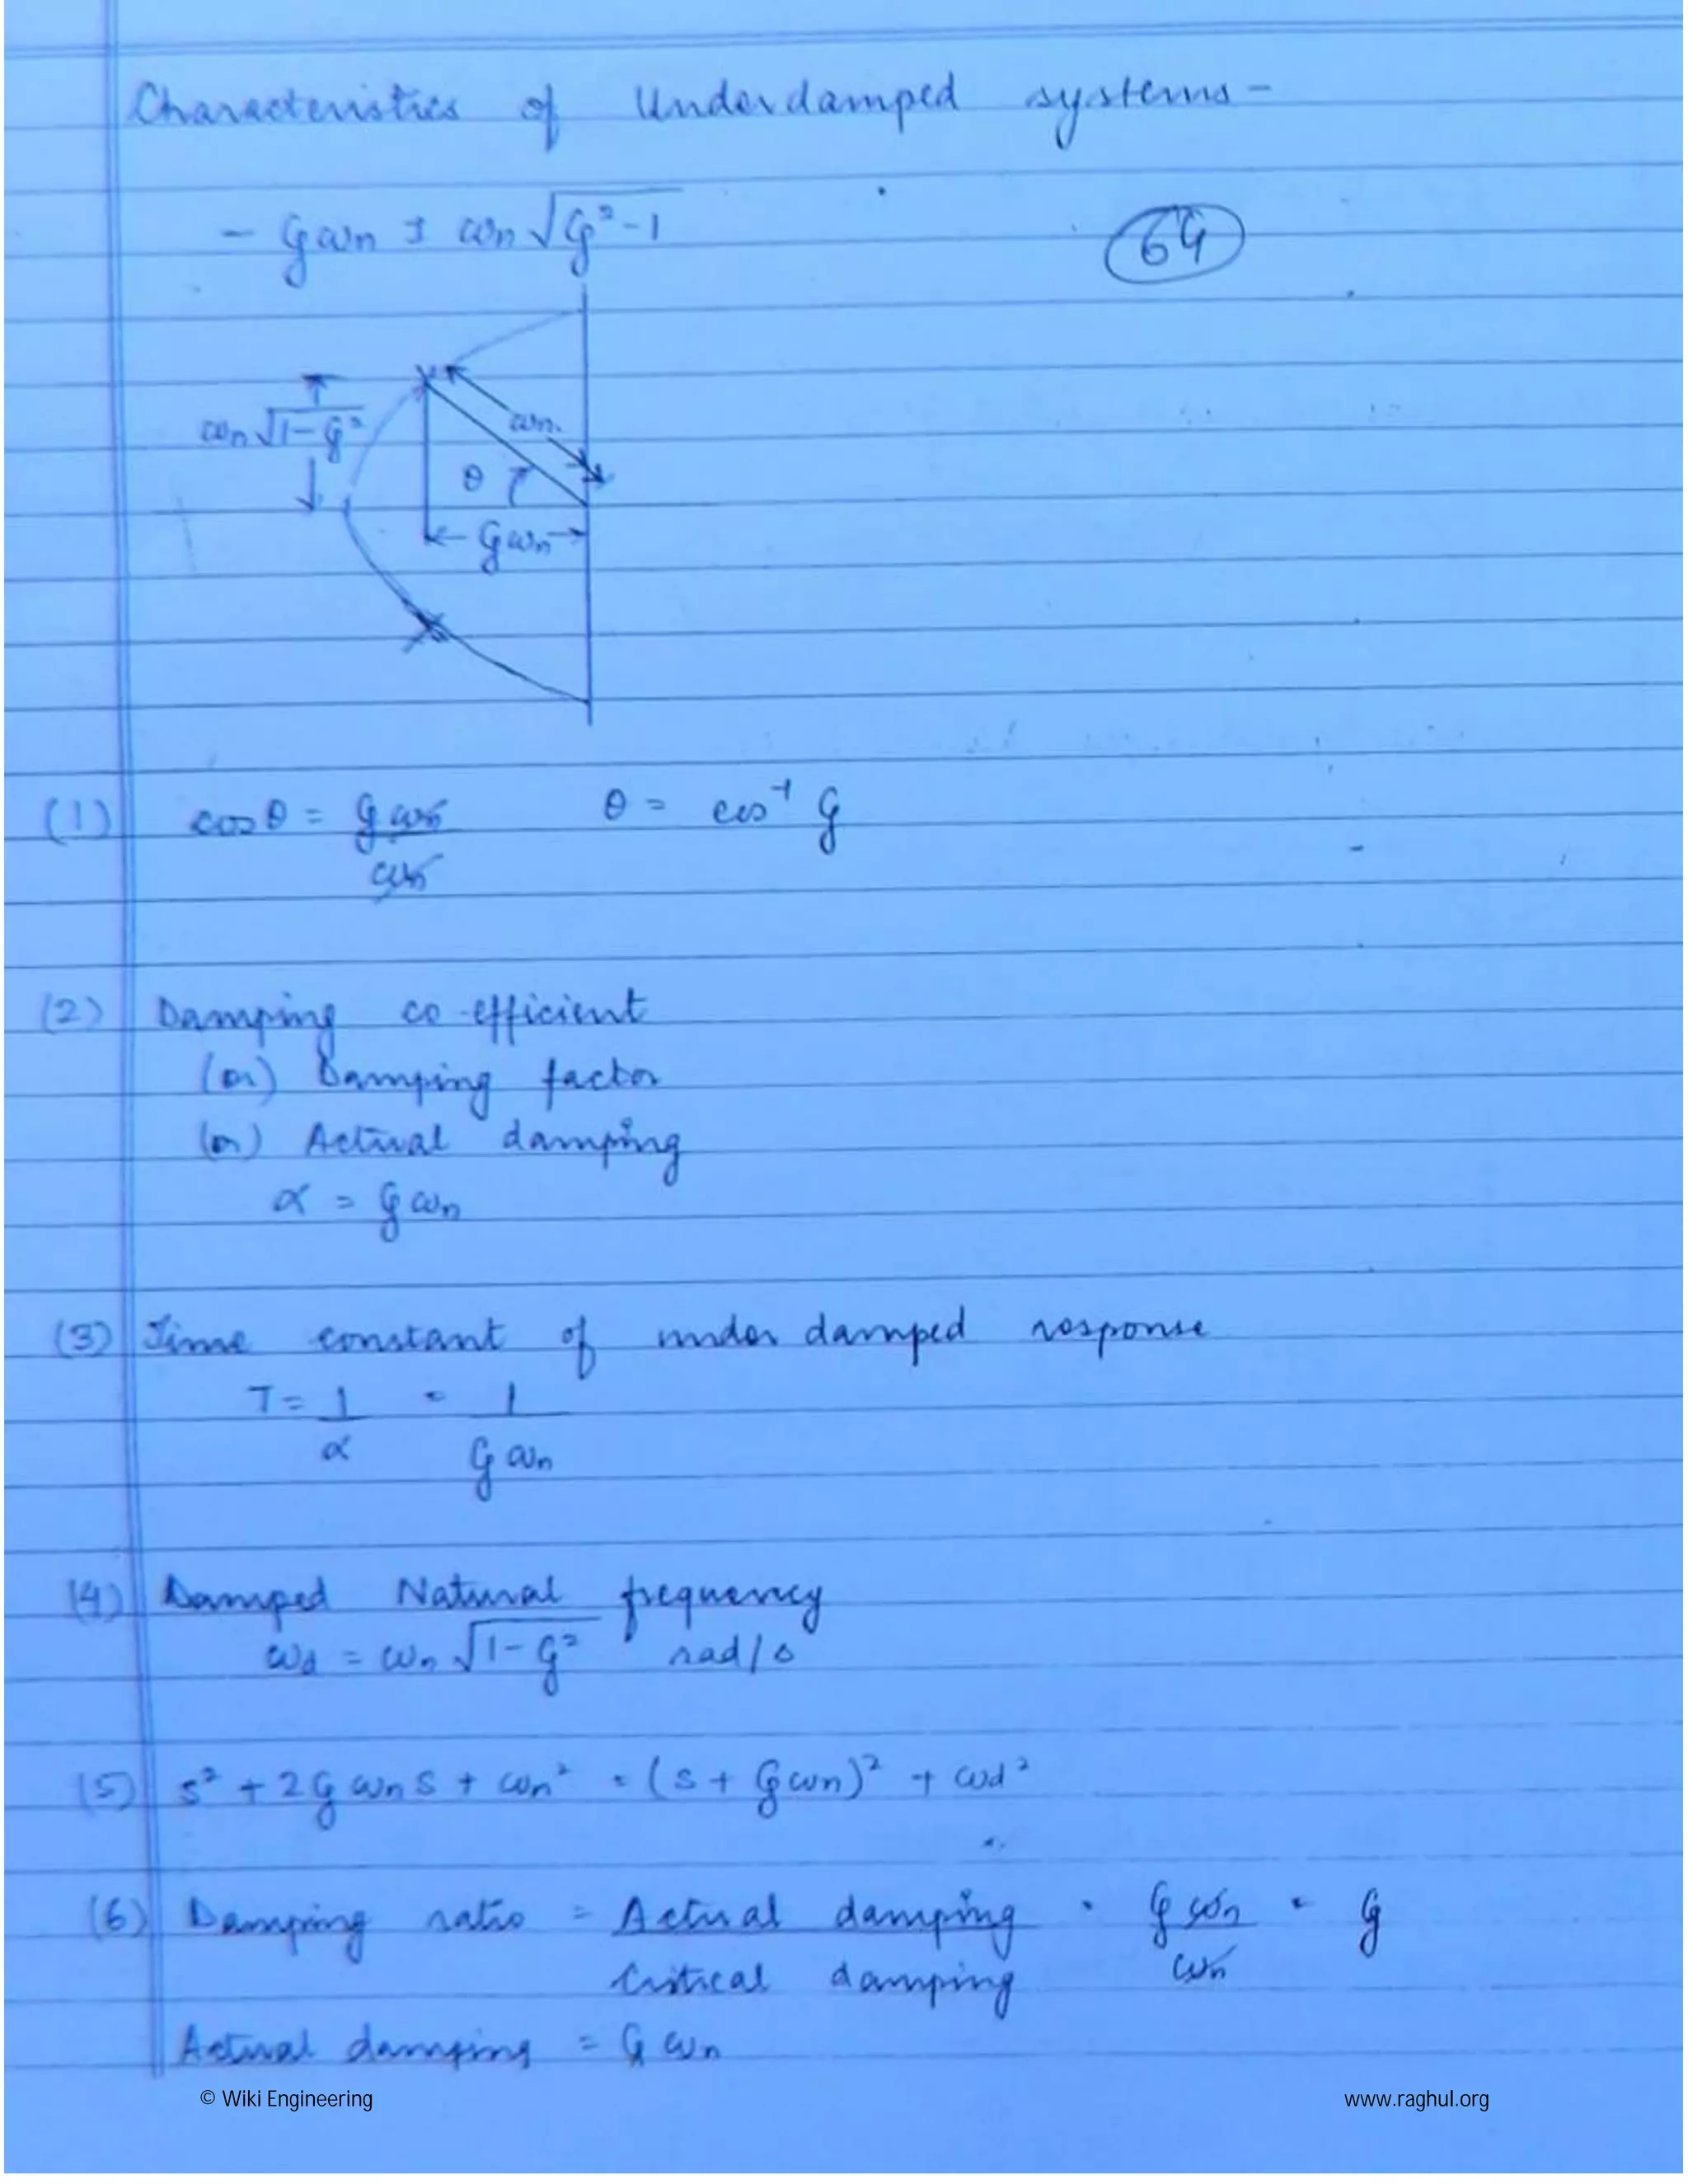 Characteristics of Underdamped systems -
- ζωn ± ωn√ζ²-1
64
ωn√1-ζ²
ωn
θ
ζωn
(1) cosθ = ζωn/ωn θ = cos⁻¹ ζ
(2) Damping co-efficient
(or) Damping factor
(or) Actual damping
α = ζωn
(3) Time constant of under damped response
T = 1/α = 1/ζωn
(4) Damped Natural frequency
ωd = ωn√1-ζ² rad/s
(5) s² + 2ζωns + ωn² = (s + ζωn)² + ωd²
(6) Damping ratio = Actual damping/Critical damping = ζωn/ωn = ζ
Actual damping = ζωn
© Wiki Engineering www.raghul.org